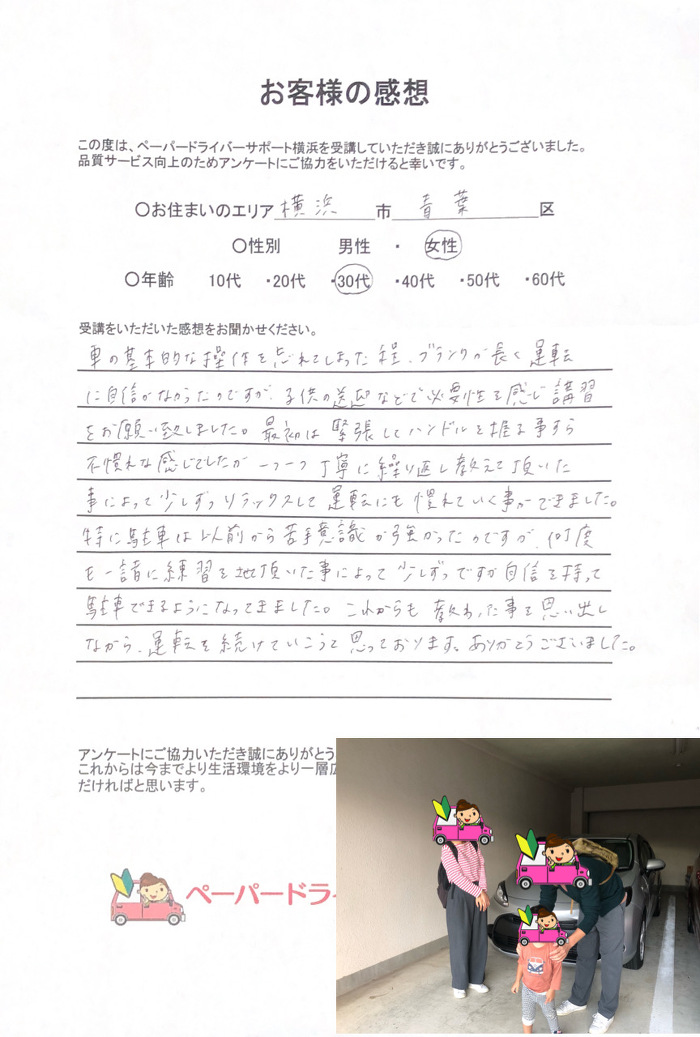 お客様の感想
この度は、ペーパードライバーサポート横浜を受講していただき誠にありがとうございました。
品質サービス向上のためアンケートにご協力をいただけると幸いです。
〇お住まいのエリア 横浜 市 青葉 区
〇性別 男性 ・ 女性
〇年齢 10代 ・20代 ・30代 ・40代 ・50代 ・60代
受講をいただいた感想をお聞かせください。
車の基本的な操作を忘れてしまった程、ブランクが長く運転
に自信がなかったのですが、子供の送迎などで必要性を感じ講習
をお願い致しました。最初は緊張してハンドルを握る事すら
不慣れな感じでしたが一つ一つ丁寧に繰り返し教えて頂いた
事によって少しずつリラックスして運転にも慣れていく事ができました。
特に駐車は以前から苦手意識が強かったのですが、何度
も一諸に練習を頂いた事によって少しずつですが自信を持って
駐車できるようになってきました。これからも教わった事を思い出し
ながら、運転を続けていこうと思っております。ありがとうございました。
アンケートにご協力いただき誠にありがとう
これからは今までより生活環境をより一層広
だければと思います。
ペーパードライ